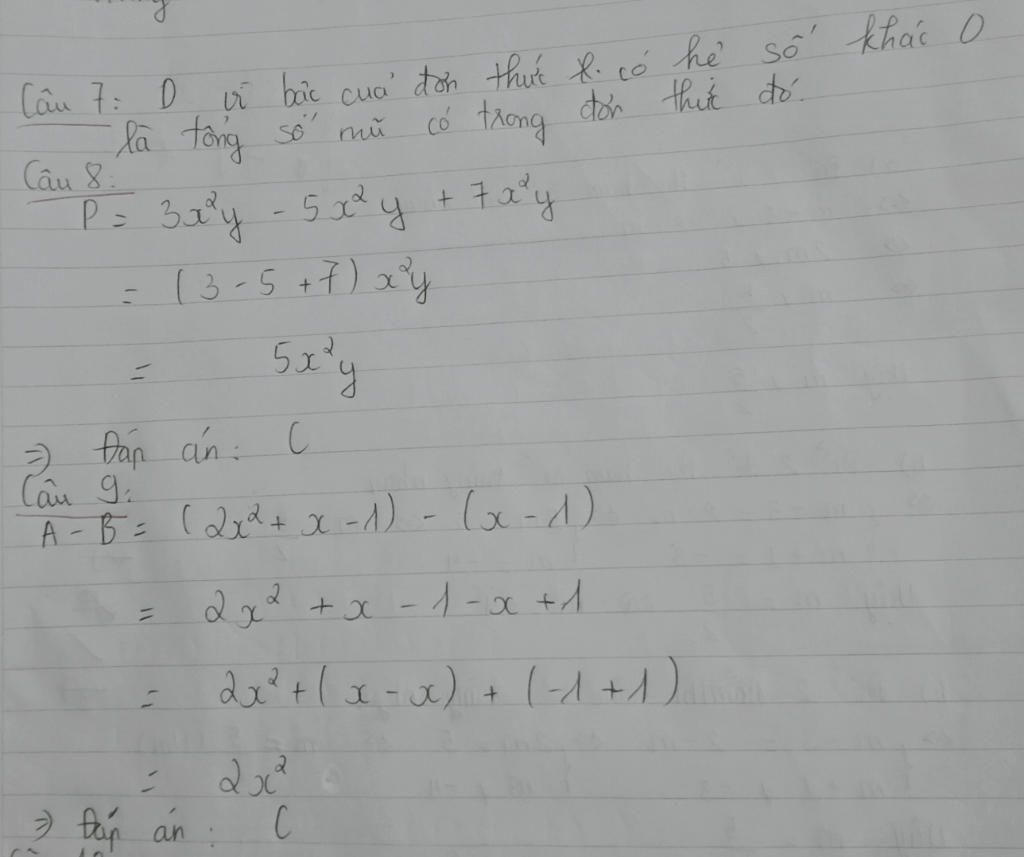 Câu 7: D vì bậc của đơn thức có hệ số khác 0
là tổng số mũ có trong đơn thức đó.
Câu 8:
P = 3x²y - 5x²y + 7x²y
= (3 - 5 + 7) x²y
= 5x²y
=> Đáp án: C
Câu 9:
A - B = (2x² + x - 1) - (x - 1)
= 2x² + x - 1 - x + 1
= 2x² + (x - x) + (-1 + 1)
= 2x²
=> Đáp án: C